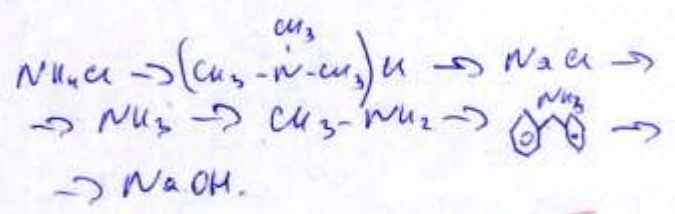 CH₃
NH₄Cl → (CH₃ - N - CH₃)Cl → NaCl →
→ NH₃ → CH₃ - NH₂ → NH₃ →
→ NaOH.